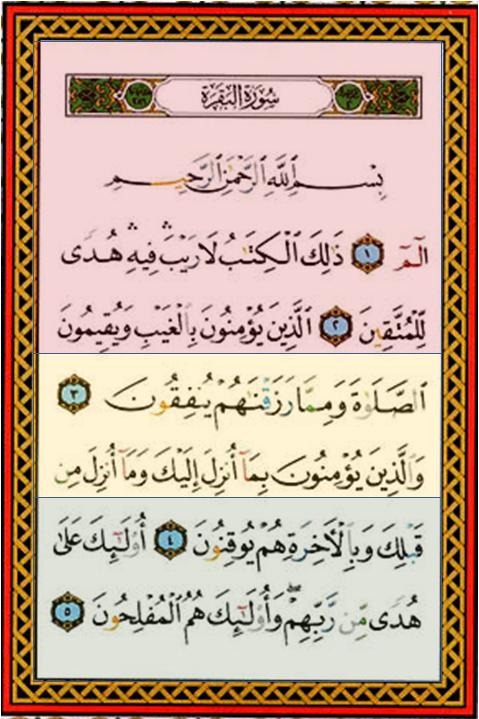 سُورَةُ الْبَقَرَةِ
بِسْمِ ٱللَّهِ ٱلرَّحْمَٰنِ ٱلرَّحِيمِ
الٓمٓ ١ ذَٰلِكَ ٱلْكِتَٰبُ لَا رَيْبَ ۛ فِيهِ ۛ هُدًى
لِّلْمُتَّقِينَ ٢ ٱلَّذِينَ يُؤْمِنُونَ بِٱلْغَيْبِ وَيُقِيمُونَ
ٱلصَّلَوٰةَ وَمِمَّا رَزَقْنَٰهُمْ يُنفِقُونَ ٣
وَٱلَّذِينَ يُؤْمِنُونَ بِمَآ أُنزِلَ إِلَيْكَ وَمَآ أُنزِلَ مِن
قَبْلِكَ وَبِٱلْأَخِرَةِ هُمْ يُوقِنُونَ ٤ أُو۟لَٰٓئِكَ عَلَىٰ
هُدًى مِّن رَّبِّهِمْ ۖ وَأُو۟لَٰٓئِكَ هُمُ ٱلْمُفْلِحُونَ ٥